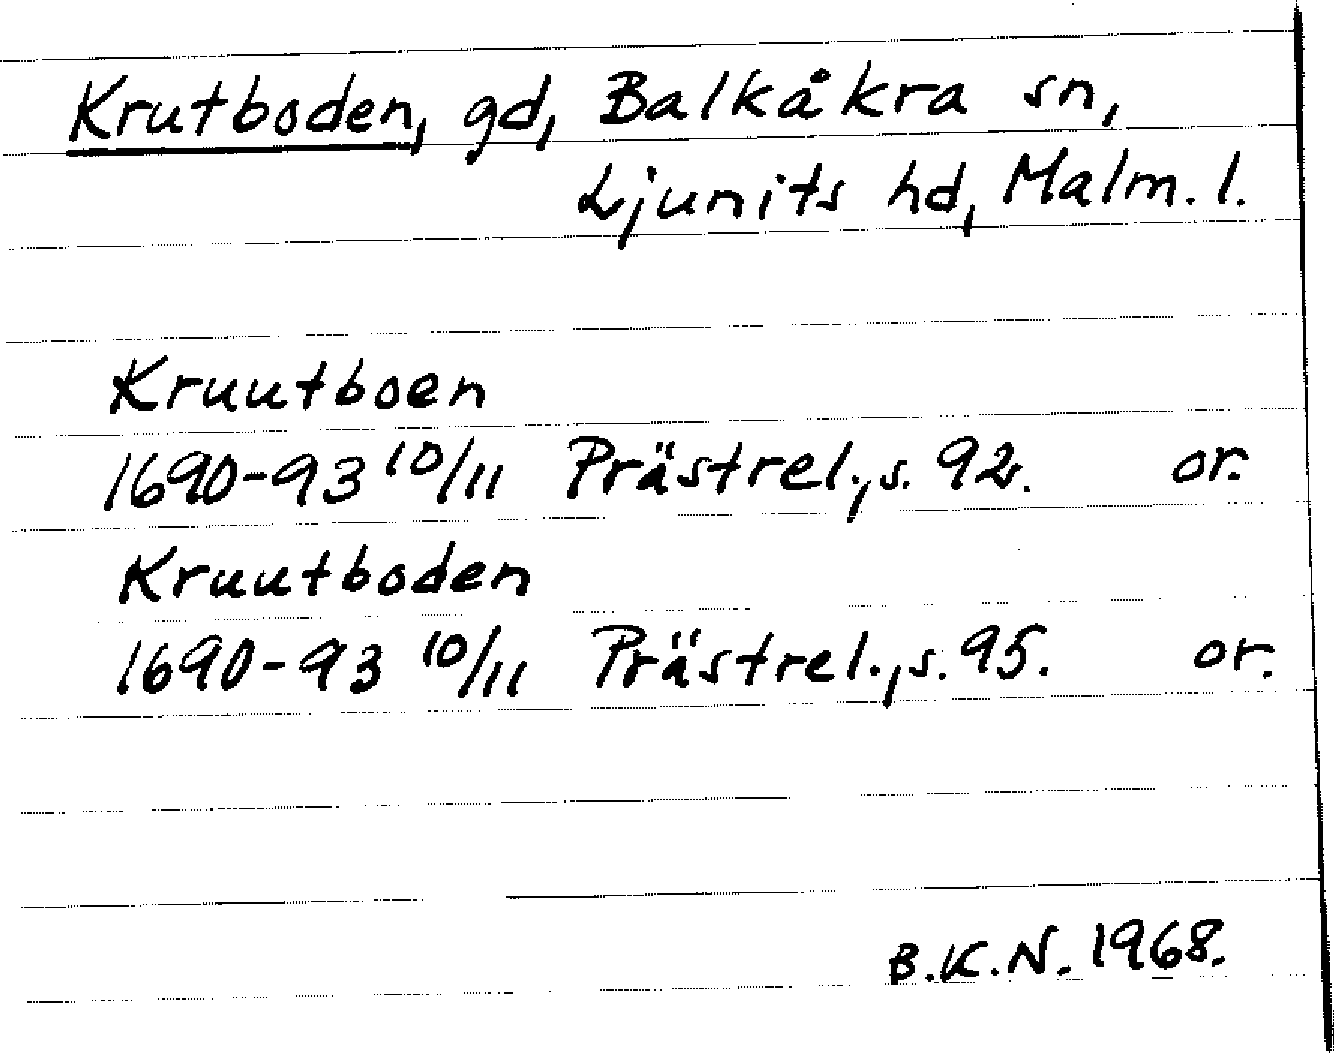 Krutboden, gd, Balkåkra sn,
Ljunits hd, Malm. l.
Kruutboen
1690-93 10/11 Prästrel., s. 92. or.
Kruutboden
1690-93 10/11 Prästrel., s. 95. or.
B.K.N. 1968.